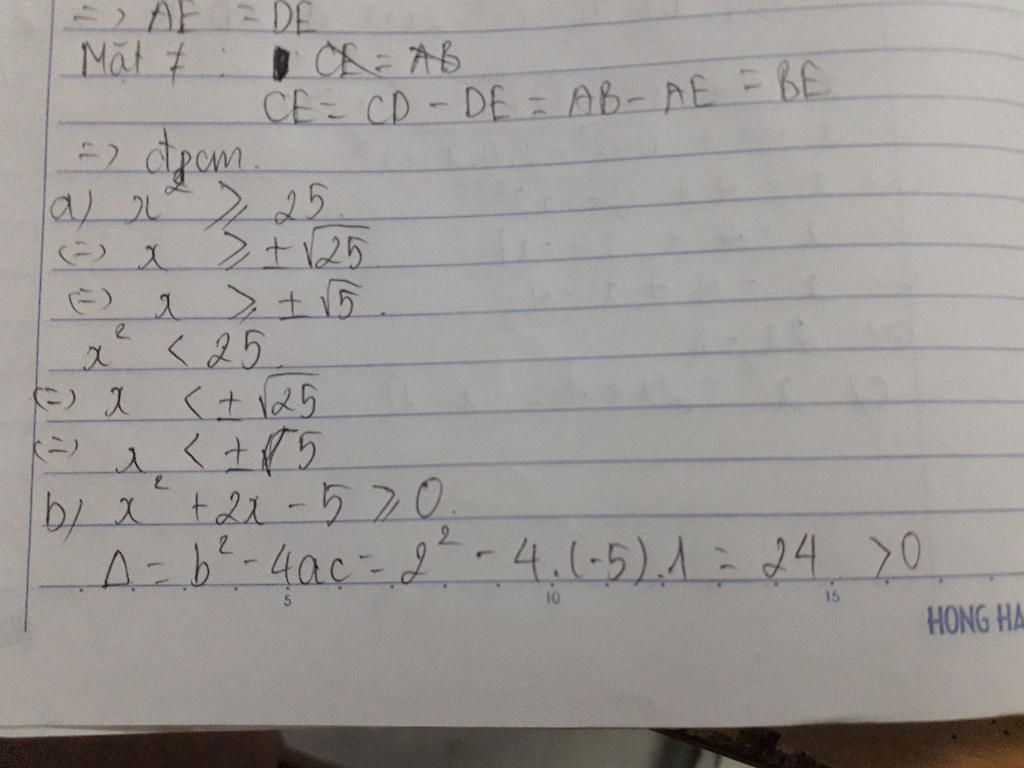 => AE = DE
Mặt ≠ : CE = AB
CE = CD - DE = AB - AE = BE
=> đpcm.
a) x² ⩾ 25.
(=) x ⩾ ± √25
(=) x ⩾ ± √5.
x² < 25
(=) x < ± √25
(=) x < ± √5
b) x² + 2x - 5 ⩾ 0.
Δ = b² - 4ac = 2² - 4.(-5).1 = 24 > 0
5 10 15
HONG HA